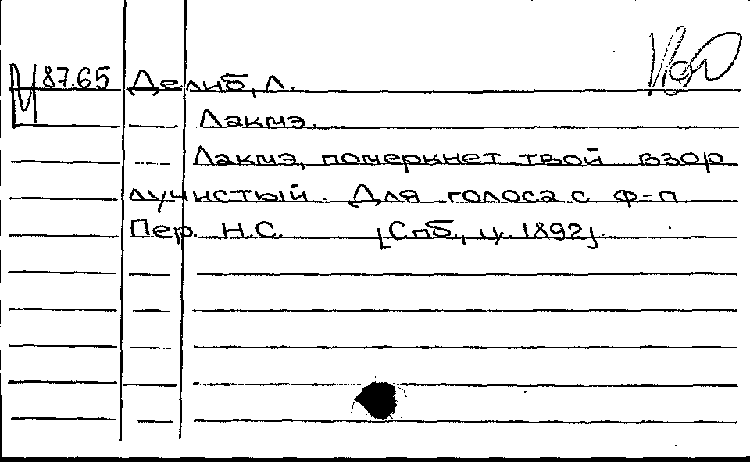 М 87.65 Делиб, Л.
Лакмэ.
Лакмэ, померкнет твой взор
лучистый. Для голоса с ф-п
Пер. Н.С. [Спб., ц. 1892].